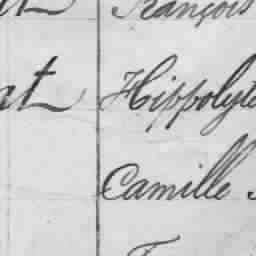 François
at Hippolyte
Camille